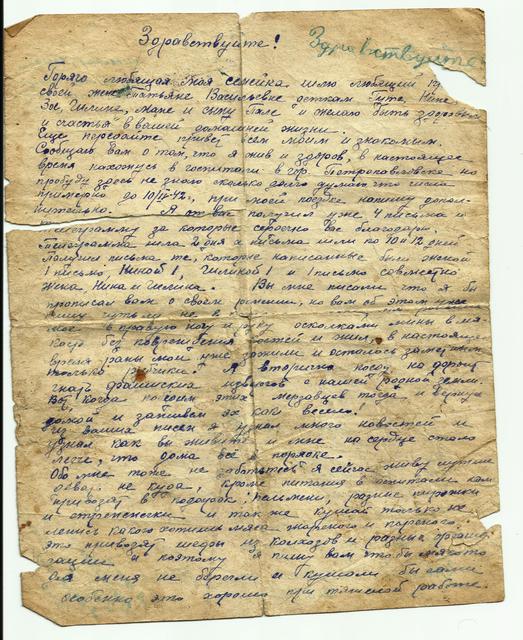 Здравствуйте! Здравствуйте
Горяго любящая моя семейка шлю любящий
своей жене Татьяне Васильевне деткам Нине
и сыну и желаю быть здоровы
и счастья в вашей домашней жизни.
Еще передайте привет всем моим и знакомым.
Сообщаю вам о том, что я жив и здоров, в настоящее
время нахожусь в госпитале в гор. Петропавловске но
пробуду здесь не знаю сколько долго думаю что числа
примерно до 10/ 42 г, при моей поездке напишу допол-
нительно. А от вас получил уже 4 письма и
телеграмму за которые сердечно вас благодарю.
Телеграмма шла 2 дня а письма шли по 10 и 12 дней
Получил письма те, которые написанные были женой
1 письмо, Ниной 1, 1 и 1 письмо совместно
Жена Нина и
Вы мне писали что я бы
прописал вам о своем ранении, но вам об этом уже
в правую ногу и руку осколками мины в мя
кость без повреждения костей и жил в настоящее
время раны мои уже зажили и осталось
только А вторично поеду на
гнать фашистских с нашей родной земли.
Вот когда этих мерзавцев тогда и вернусь
домой и заживем эх как весело!
Из ваших писем я узнал много новостей и
узнал как вы живете и мне на сердце стало
легче, что дома все в порядке.
Обо мне тоже не заботьтесь я сейчас живу лучше
девать не куда, кроме питания в госпитале нам
привозят в подарок: пельмени, разные пирожки
и и так же кушай только не
ленись какого хотишь мяса жареного и пареного.
это привозят шефы из колхозов и разные органи
зации и поэтому я пишу вам чтобы мясо
для меня не берегли и кушали бы сами
особенно это хорошо при тяжелой работе.